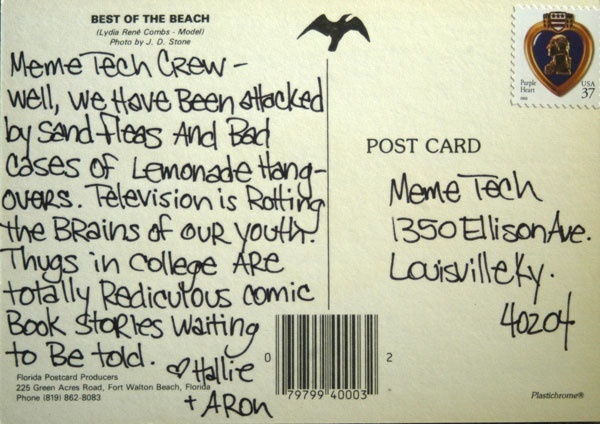 BEST OF THE BEACH
(Lydia René Combs - Model)
Photo by J. D. Stone
Meme Tech Crew -
well, we Have Been attacked
by Sand fleas And Bad
Cases of Lemonade Hang-
overs. Television is Rotting
the Brains of our youth.
Thugs in College ARE
totally Rediculous comic
Book Stories Waiting
to Be told. ♡ Hallie
+ ARon
Florida Postcard Producers
225 Green Acres Road, Fort Walton Beach, Florida
Phone (819) 862-8083
0
79799 40003
2
Purple
Heart
USA
37
POST CARD
Meme Tech
1350 Ellison Ave.
Louisville Ky.
40204
Plastichrome®